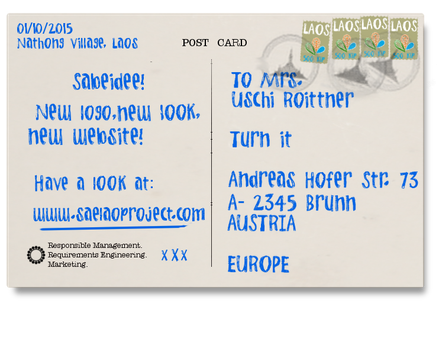 01/10/2015
Nathong Village, Laos
POST CARD
Sabeidee!
New logo, new look,
new website!
Have a look at:
www.saelaoproject.com
Responsible Management.
Requirements Engineering.
Marketing.
x x x
LAOS
LAOS
LAOS
LAOS
500 KIP
500 KIP
500 KIP
500 KIP
To Mrs.
Uschi Roittner
Turn it
Andreas Hofer Str. 73
A- 2345 Brunn
AUSTRIA
EUROPE